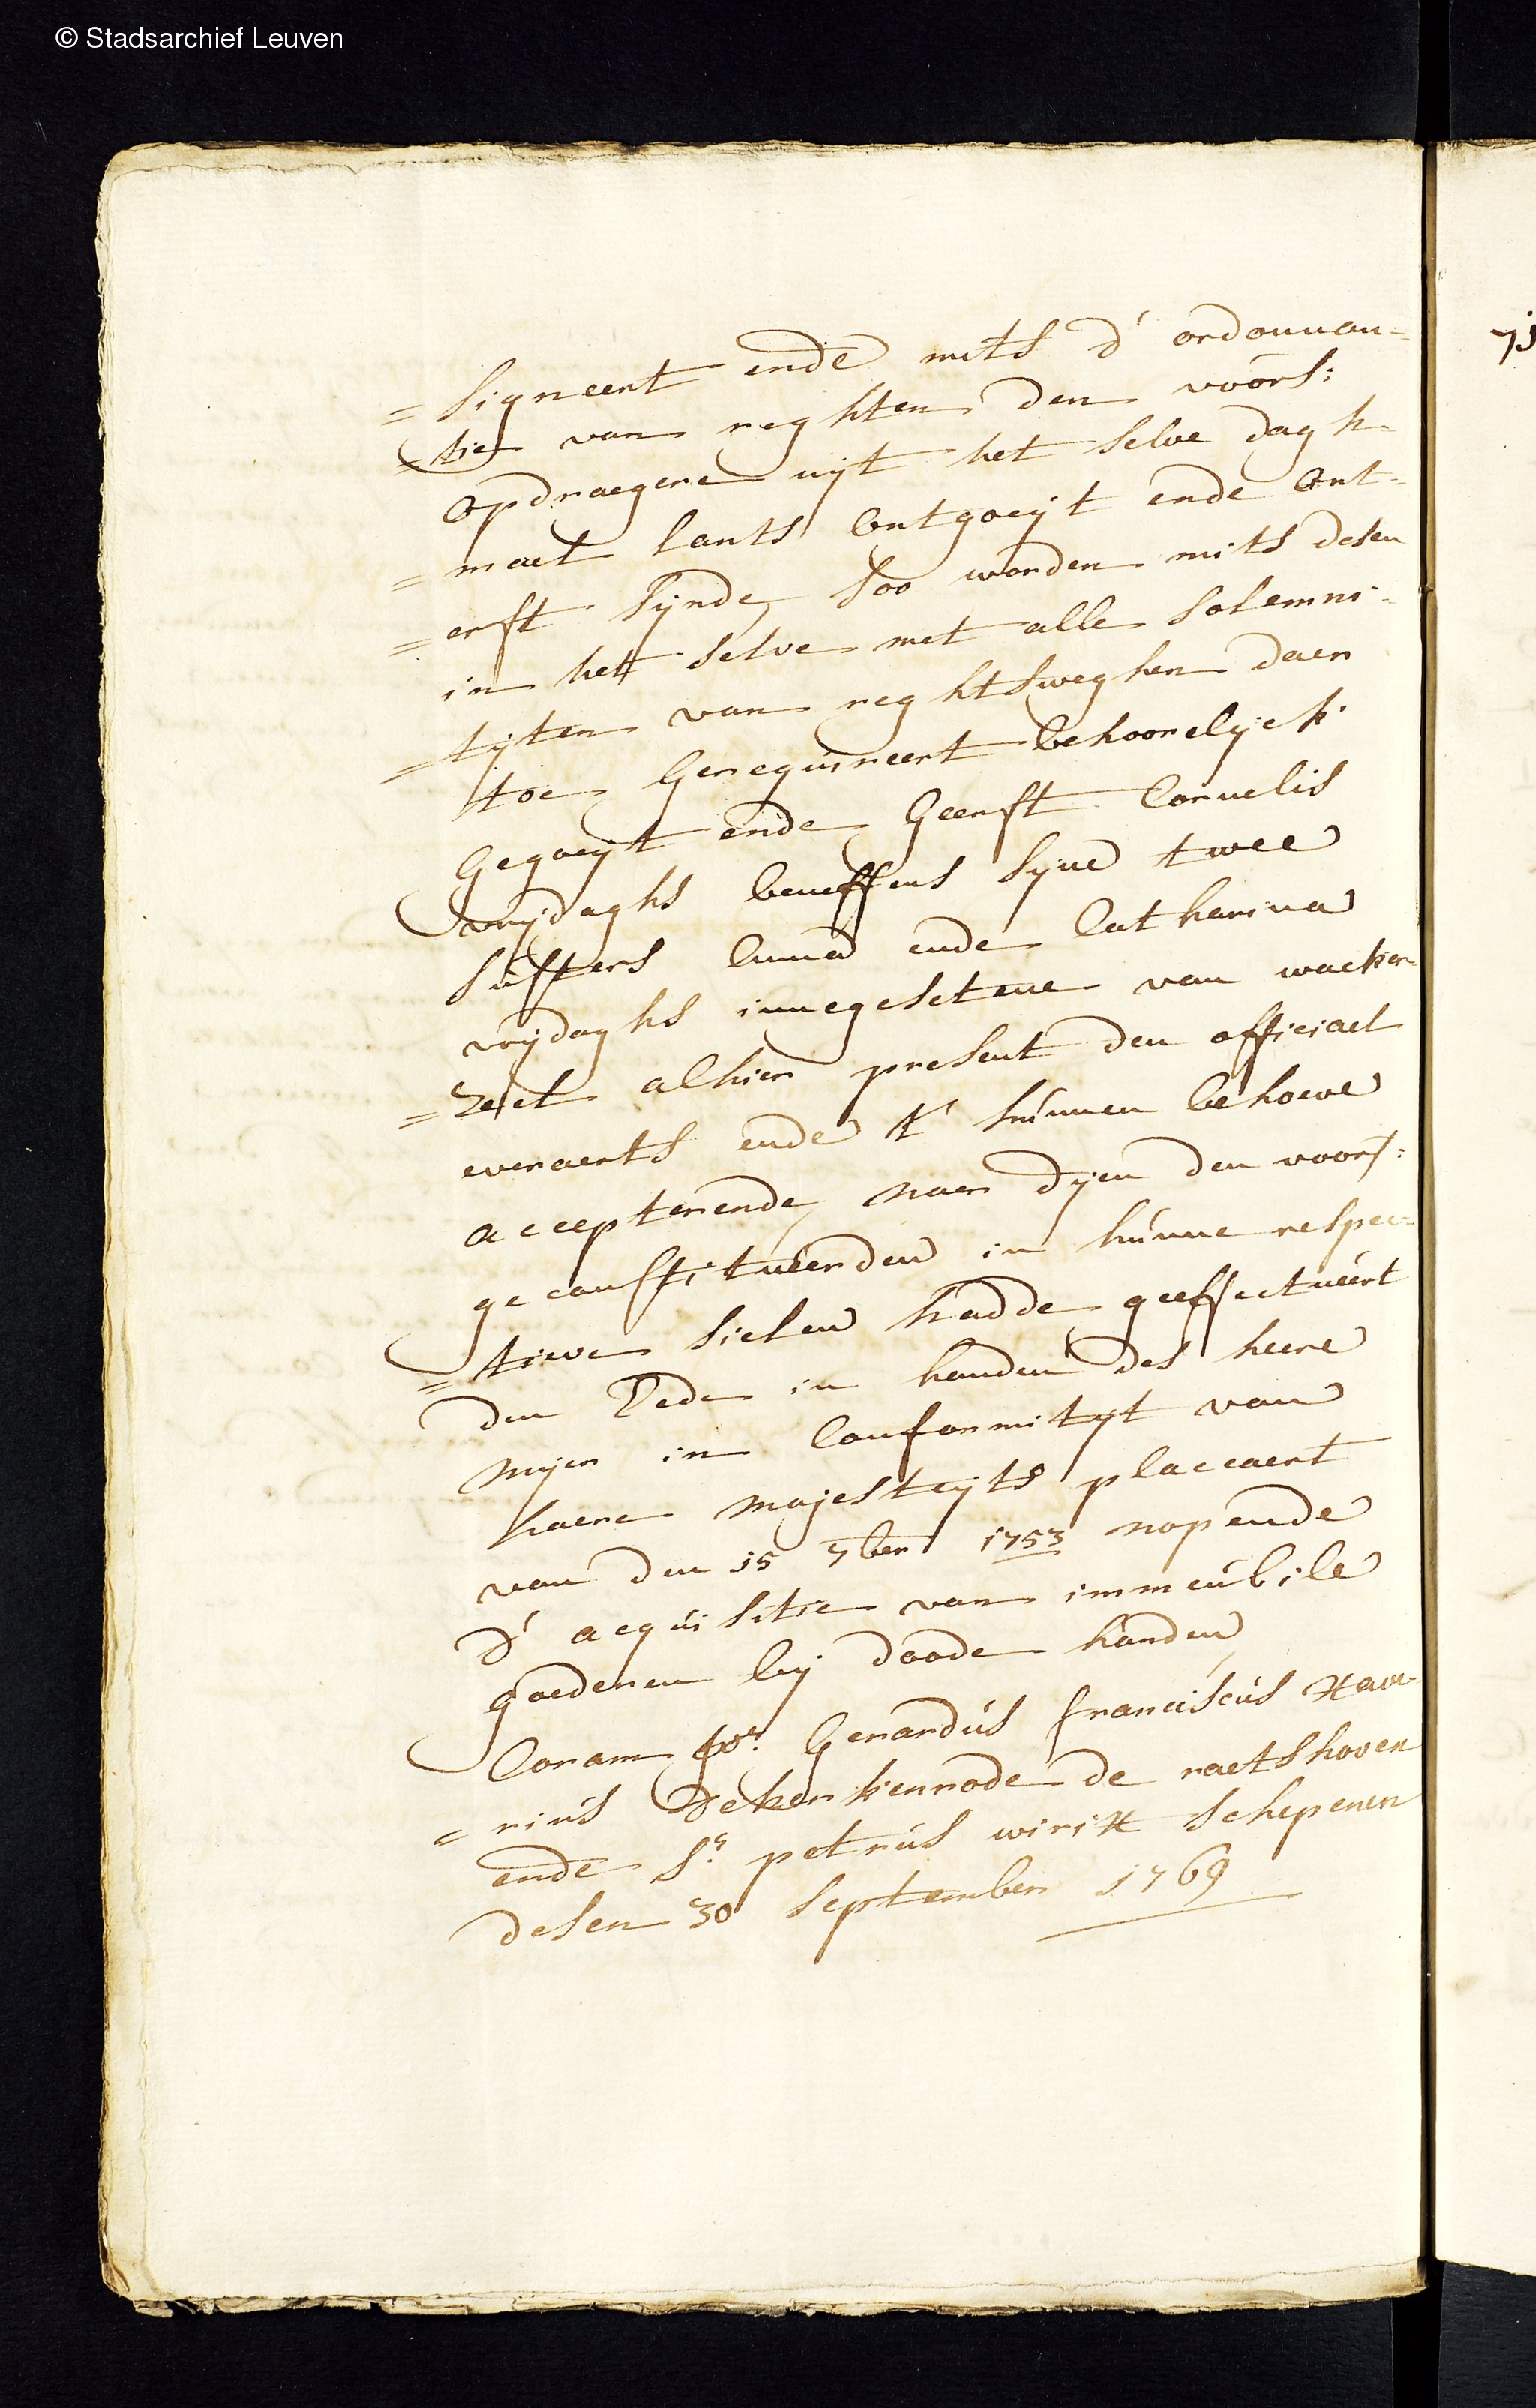 © Stadsarchief Leuven
= signeert ende mits d' ordonnan=
= tie van reghten den voors:
opdraegere uijt het selve dagh-
= mael lants ontgoeijt ende ont-
= erft sijnde, soo worden mits desen
in het selve met alle solemni-
= tijten van reghtsweghen daer
toe gerequireert behoorelijck
gegoeijt ende geerft Cornelis
vrijdaghs beneffens sijne twee
susters Anna ende Catharina
vrijdaghs innegesetene van wacker-
= zeel alhier present den officiael
everaerts ende t' hunnen behoeve
accepterende, naer dijen den voors:
geconstitueerden in hunne respec-
= tieve sielen hadde geeffectueert
den Eede in handen des heere
mijer in Conformitijt van
haere majesteijts placcaert
van den 15 7ber 1753 nopende
d' acquisitie van immeubile
goederen bij doode handen,
Coram Gerardus franciscus Have-
= rius de kerkenrode de raetshoven
ende Sr. petrus wirix schepenen
desen 30 september 1769